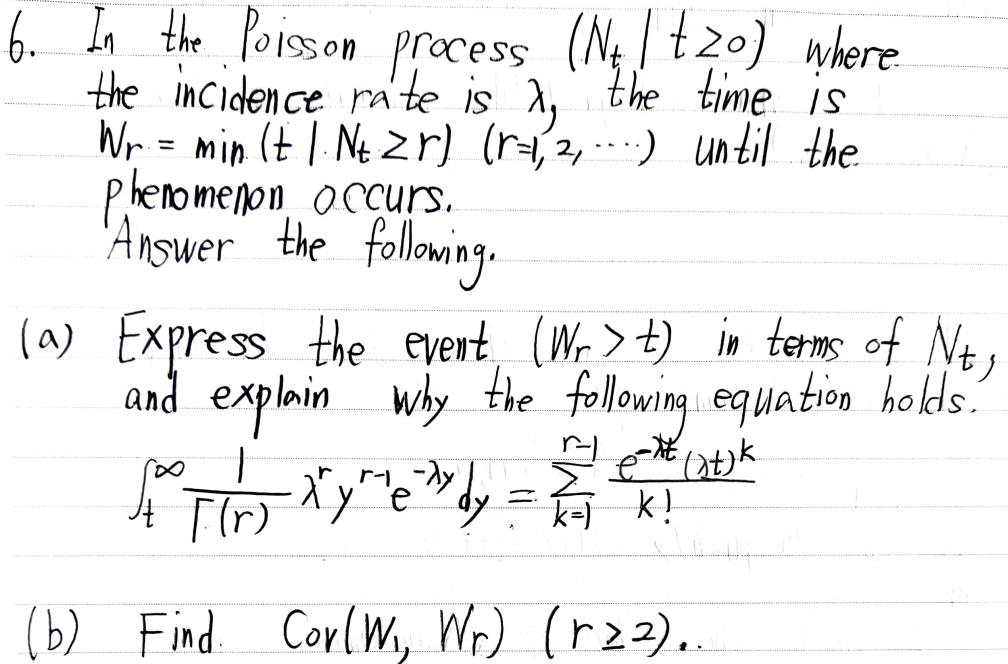 6. In the Poisson process (N_t | t≥0) where
the incidence rate is λ, the time is
W_r = min (t | N_t ≥ r) (r=1, 2, ....) until the
phenomenon occurs.
Answer the following.
(a) Express the event (W_r > t) in terms of N_t,
and explain why the following equation holds.
∫_t^∞ 1/Γ(r) λ^r y^{r-1} e^{-λy} dy = Σ_{k=1}^{r-1} e^{-λt} (λt)^k / k!
(b) Find. Cov(W_1, W_r) (r≥2)..